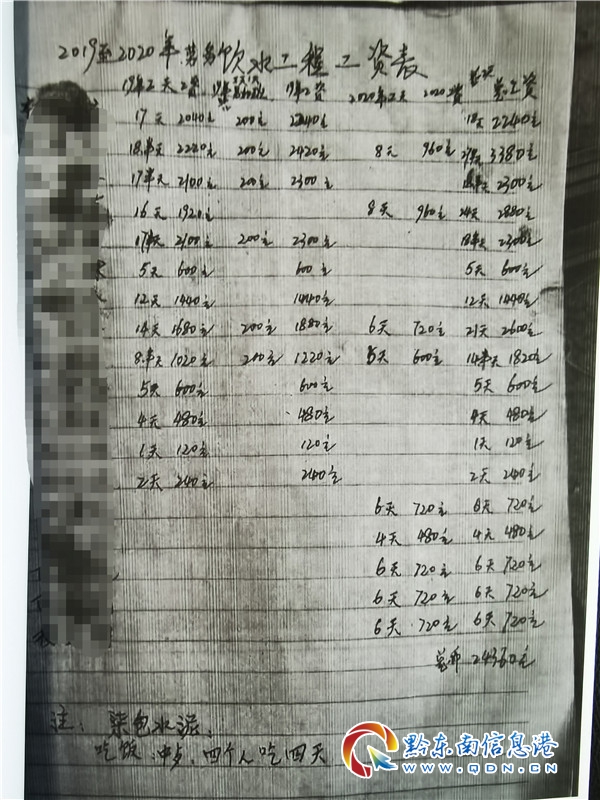 2019至2020年劳务饮水工程工资表
19年工天 工资 19年工资 2020年工天 2020工资 总工资
17天 2040元 200元 2240元 18天 2240元
18.半天 2220元 200元 2420元 8天 960元 3380元
17半天 2100元 200元 2300元 2300元
16天 1920元 8天 960元 24天 2880元
17半天 2100元 200元 2300元 18半天 2300元
5天 600元 600元 5天 600元
12天 1440元 1440元 12天 1440元
14天 1680元 200元 1880元 6天 720元 21天 2600元
8.半天 1020元 200元 1220元 5天 600元 14半天 1820元
5天 600元 600元 5天 600元
4天 480元 480元 4天 480元
1天 120元 120元 1天 120元
2天 240元 240元 2天 240元
6天 720元 6天 720元
4天 480元 4天 480元
6天 720元 6天 720元
6天 720元 6天 720元
6天 720元 6天 720元
24360元
注: 包水泥
吃饭 四个人吃四天
黔东南信息港
WWW.QDN.CN